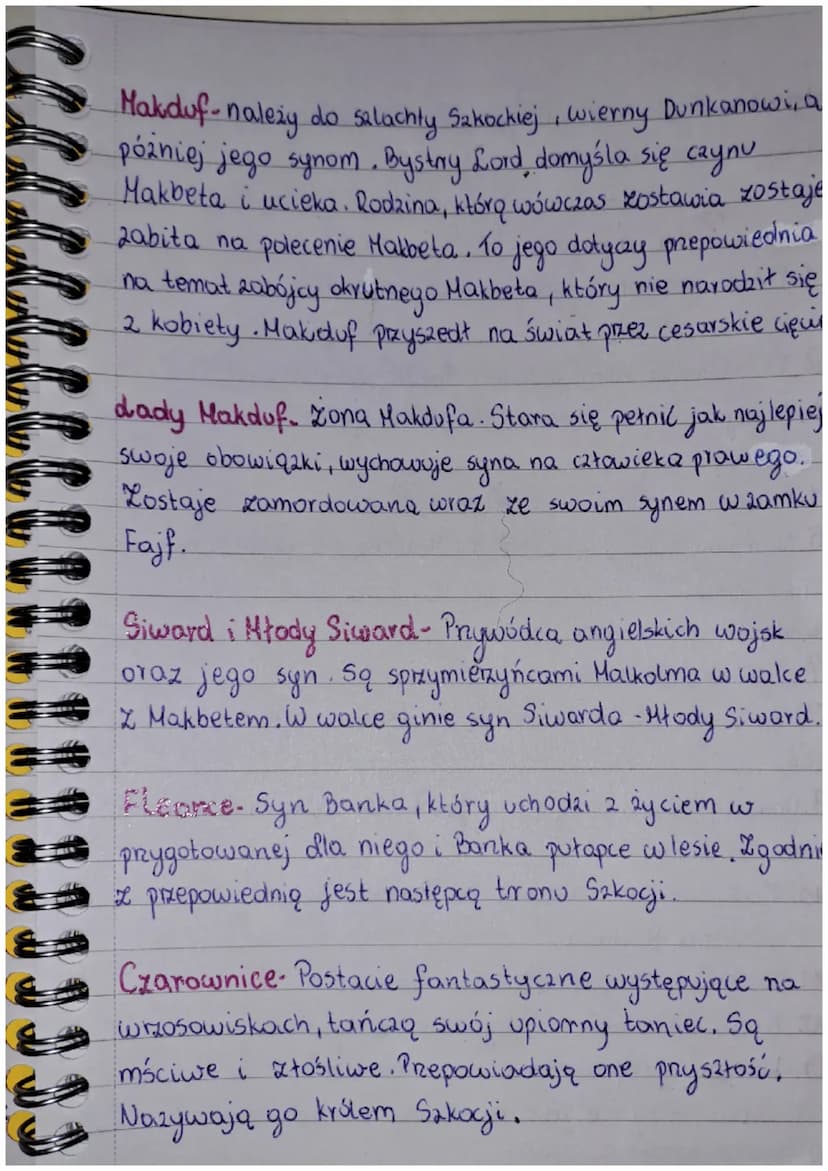 Makduf- należy do szlachty Szkockiej, wierny Dunkanowi, a
później jego synom. Bystry Lord, domyśla się czynu
Makbeta i ucieka. Rodzina, którą wówczas zostawia zostaje
zabita na polecenie Makbeta. To jego dotyczy przepowiednia
na temat zabójcy okrutnego Makbeta, który nie narodził się
z kobiety. Makduf przyszedł na świat przez cesarskie
Lady Makduf- żona Makdufa. Stara się pełnić jak najlepiej
swoje obowiązki, wychowuje syna na człowieka prawego.
Zostaje zamordowana wraz ze swoim synem w zamku
Fajf.
Siward i Młody Siward- Przywódca angielskich wojsk
oraz jego syn. Są sprzymierzyńcami Malkolma w walce
z Makbetem. W walce ginie syn Siwarda - Młody Siward.
Fleance- Syn Banka, który uchodzi z życiem w
przygotowanej dla niego i Banka pułapce w lesie. Zgodni
z przepowiednią jest następcą tronu Szkocji.
Czarownice- Postacie fantastyczne występujące na
wrzosowiskach, tańczą swój upiorny taniec. Są
mściwe i złośliwe. Przepowiadają one przyszłość.
Nazywają go królem Szkocji.